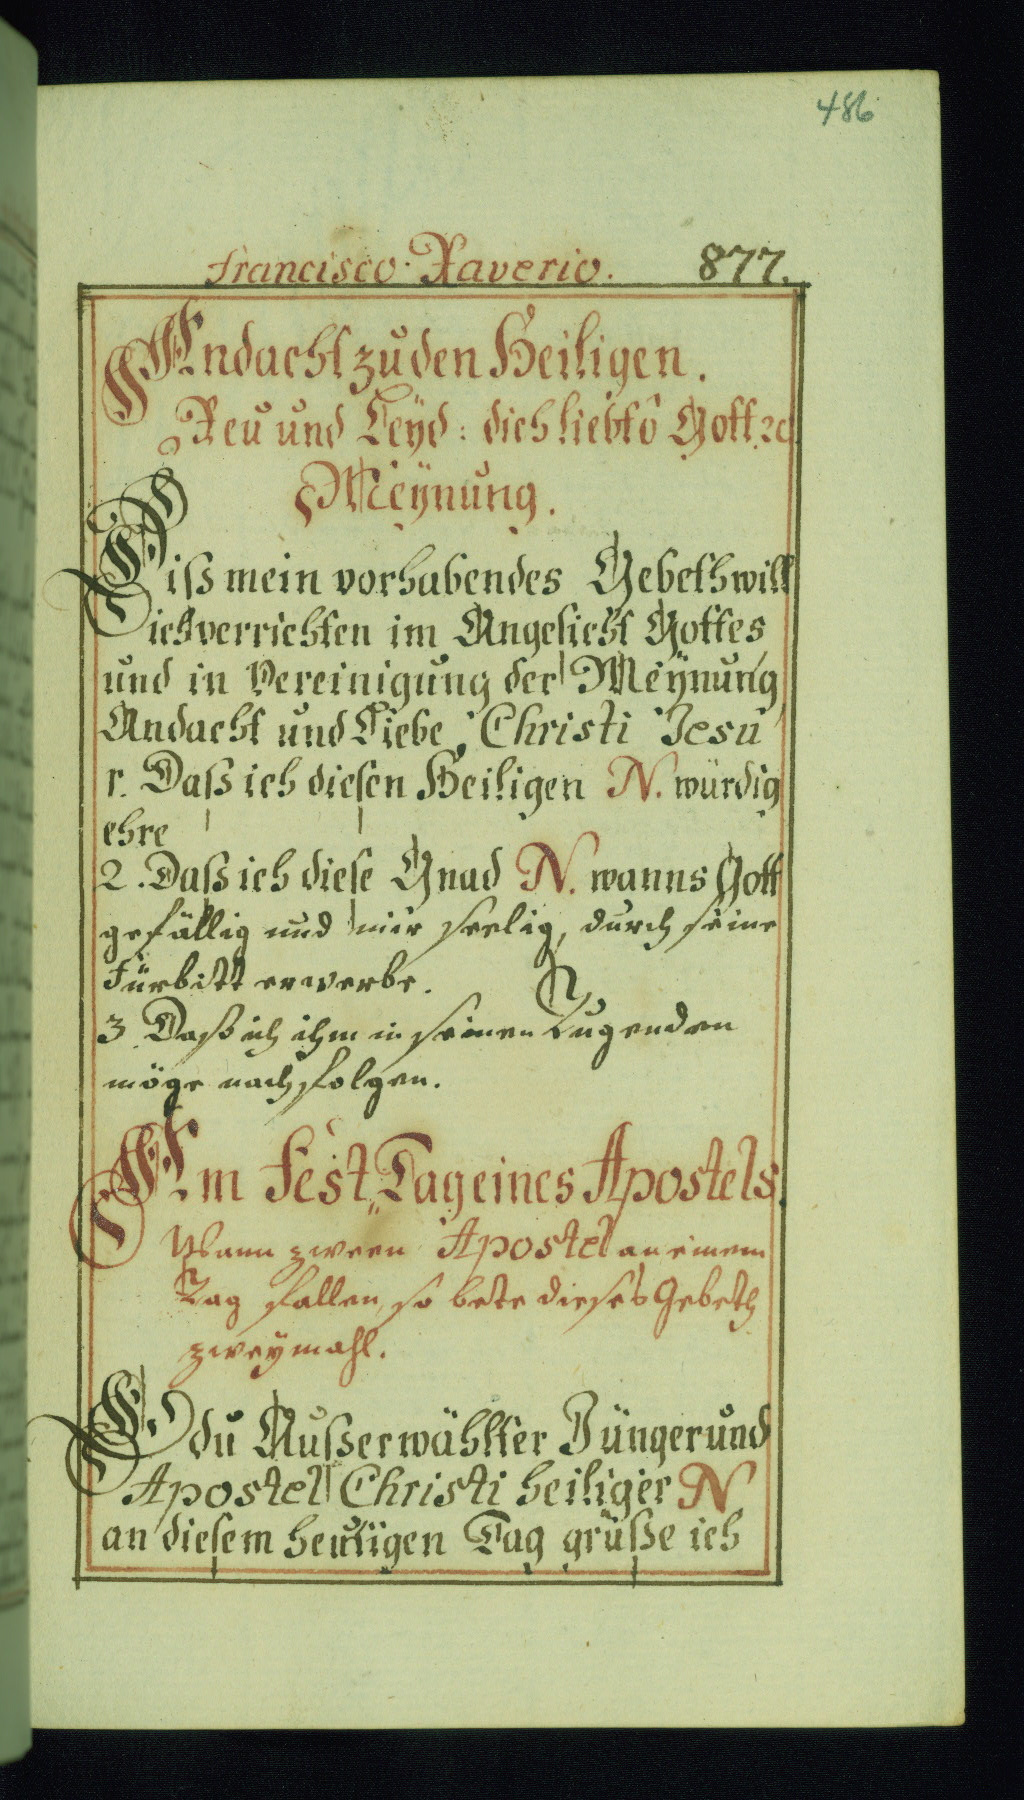 486
Francisco Xaverio. 877.
Andacht zu den Heiligen.
Reu und Leyd: dich liebt o Gott ꝛc
Meÿnung.
Diß mein vorhabendes Gebeth will
ich verrichten im Angesicht Gottes
und in Vereinigung der Meÿnung
Andacht und Liebe Christi Jesu
1. Daß ich diesen Heiligen N. würdig
ehre
2. Daß ich diese Gnad N. wanns Gott
gefällig und mir seelig, durch seine
Fürbitt erwerbe.
3 Daß ich ihm in seinen Tugenden
möge nachfolgen.
Am Fest Tag eines Apostels.
Wann zween Apostel an einem
Tag fallen, so bete dieses Gebeth
zweÿmahl.
O du Außerwählter Jünger und
Apostel Christi heiliger N
an diesem heutigen Tag grüße ich